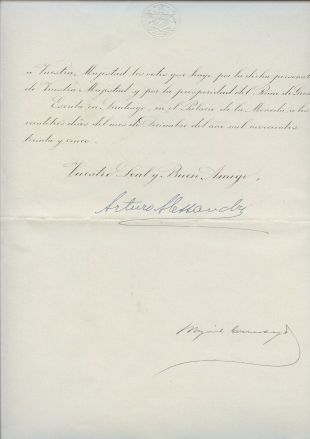 a Vuestra Magestad los votos que hago por la dicha personal
de Vuestra Magestad y por la prosperidad del Reino de
Escrita en Santiago, en el Palacio de la Moneda, a los
veintitrés días del mes de Diciembre del año mil novecientos
treinta y cinco.
Vuestro Leal y Buen Amigo,
Arturo Alessandri
Miguel